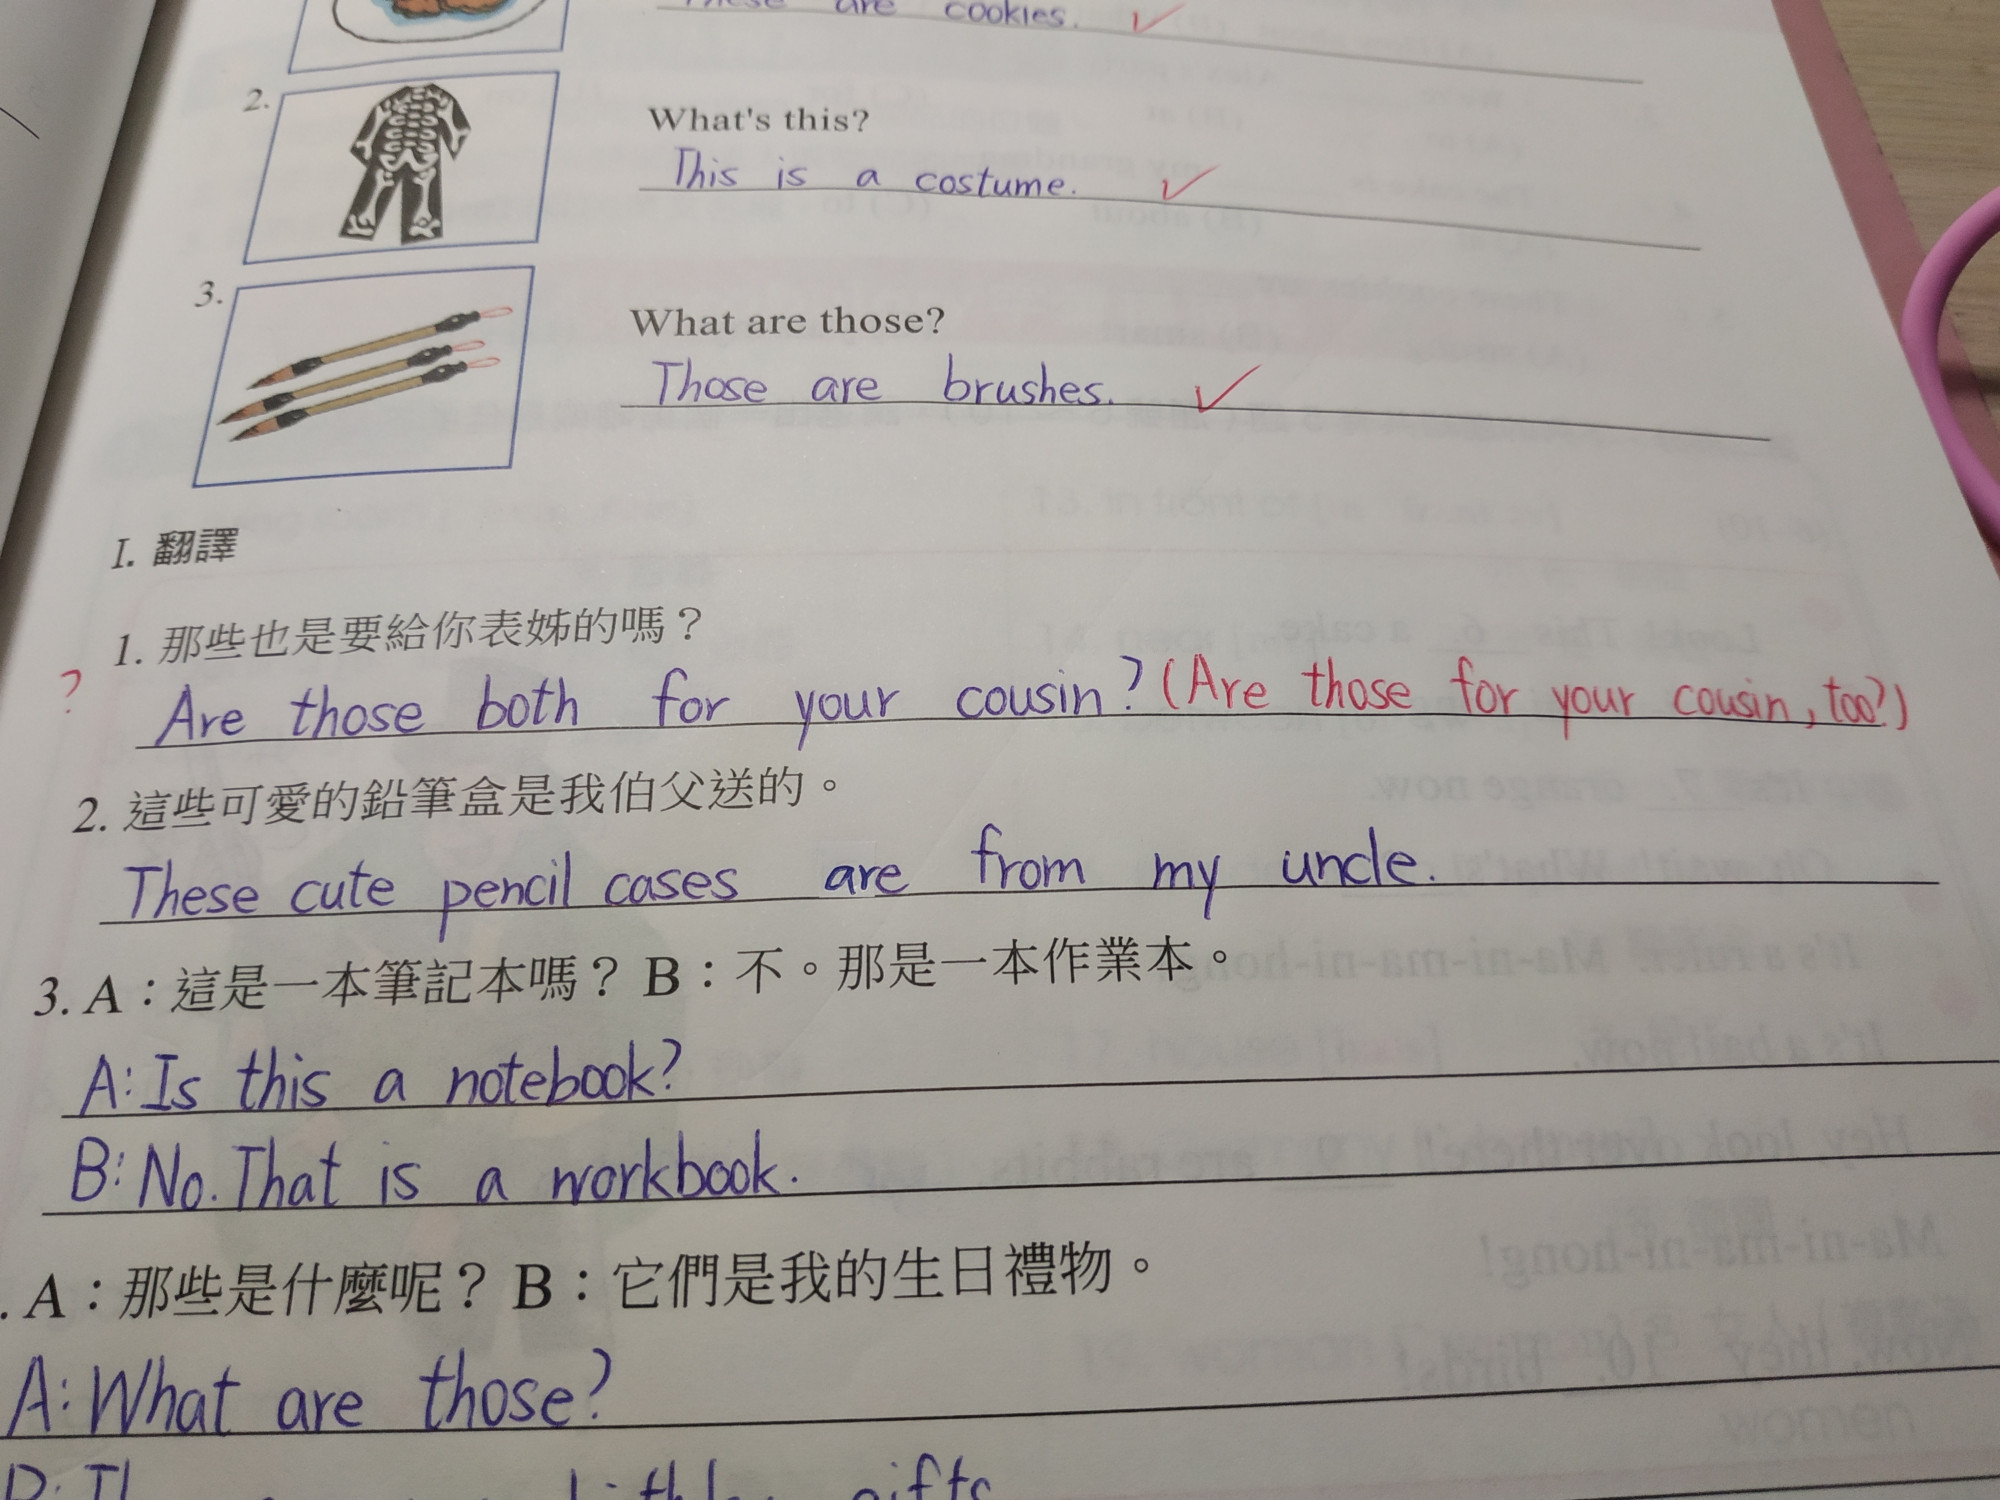 These are cookies. ✓
2.
What's this?
This is a costume. ✓
3.
What are those?
Those are brushes. ✓
I. 翻譯
1. 那些也是要給你表姊的嗎？
? Are those both for your cousin? (Are those for your cousin, too?)
2. 這些可愛的鉛筆盒是我伯父送的。
These cute pencil cases are from my uncle.
3. A：這是一本筆記本嗎？ B：不。那是一本作業本。
A: Is this a notebook?
B: No. That is a workbook.
. A：那些是什麼呢？ B：它們是我的生日禮物。
A: What are those?
gifts